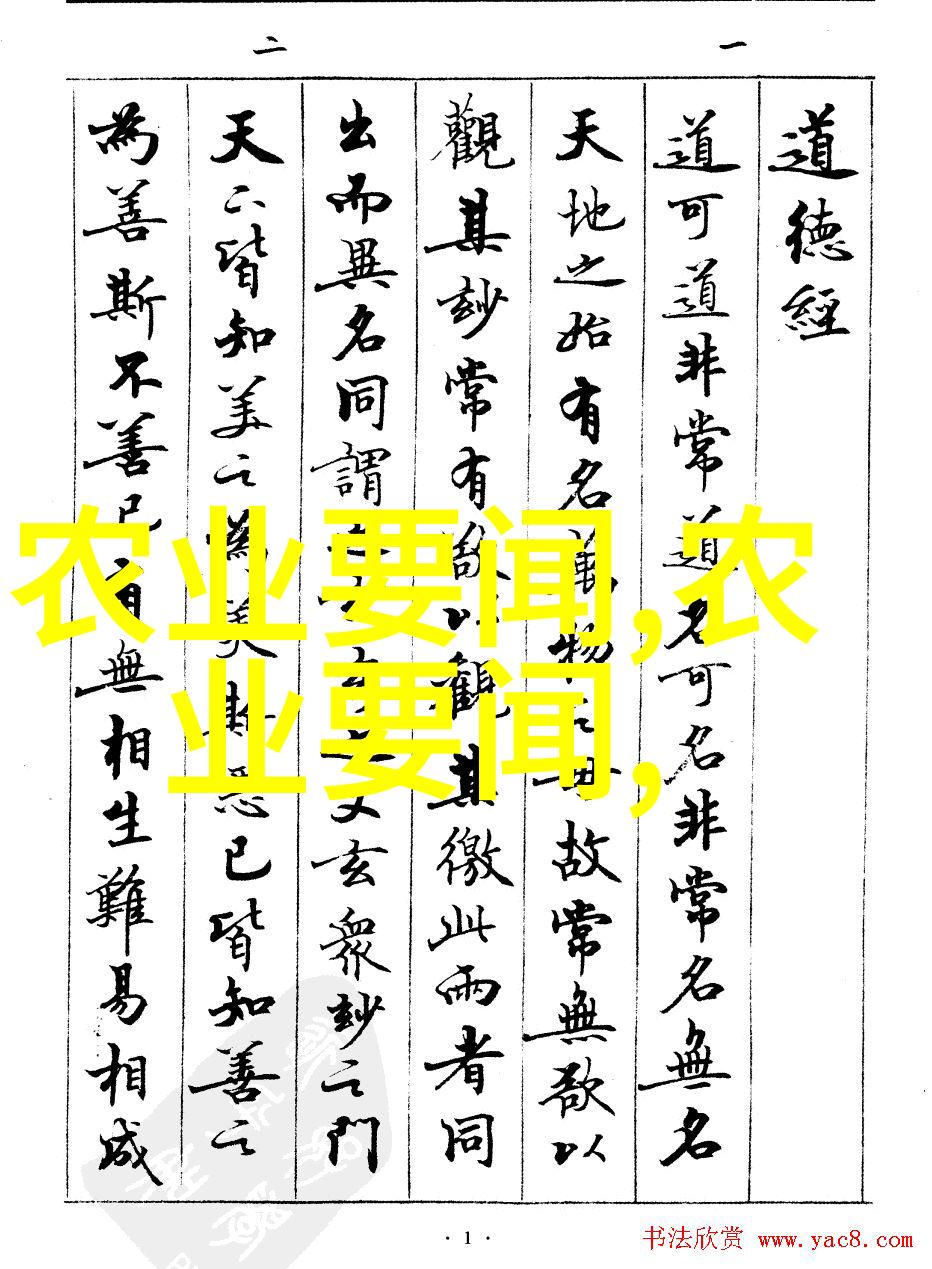 一
二
道德經
道可道非常道名可名非常名無名
天地之始有名萬物之母故常無欲以
觀其玅常有欲以觀其徼此兩者同
出而異名同謂之玄玄之又玄衆玅之門
天下皆知美之為美斯惡已皆知善之
為善斯不善已有無相生難易相成
农业要闻,农
业要闻,
· 1 ·
书法欣赏 www.yac8.com